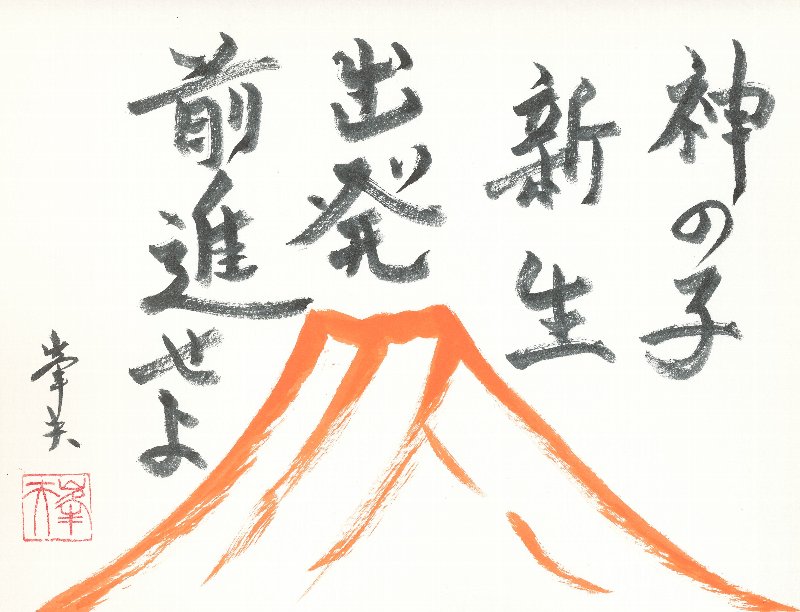 神の子
新生
出発
前進せよ
峯夫